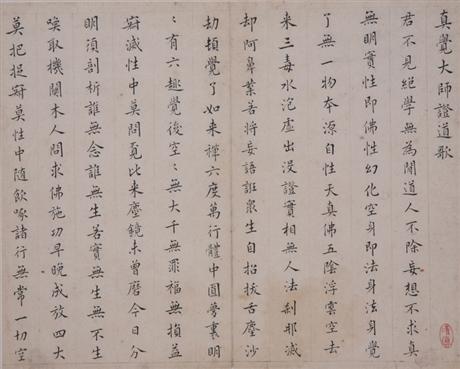 真覺大師證道歌
君不見絕學無為閒道人不除妄想不求真
無明實性即佛性幻化空身即法身法身覺
了無一物本源自性天真佛五陰浮雲空去
来三毒水泡虛出沒證實相無人法剎那滅
却阿鼻業若將妄語誑衆生自招拔舌塵沙
劫頓覺了如来禪六度萬行體中圓夢裏明
〻有六趣覺後空〻無大千無罪福無損益
寂滅性中莫問覓比来塵鏡未曾磨今日分
明須剖析誰無念誰無生若實無生無不生
喚取機關木人問求佛施功早晚成放四大
莫把捉寂莫性中隨飲啄諸行無常一切空